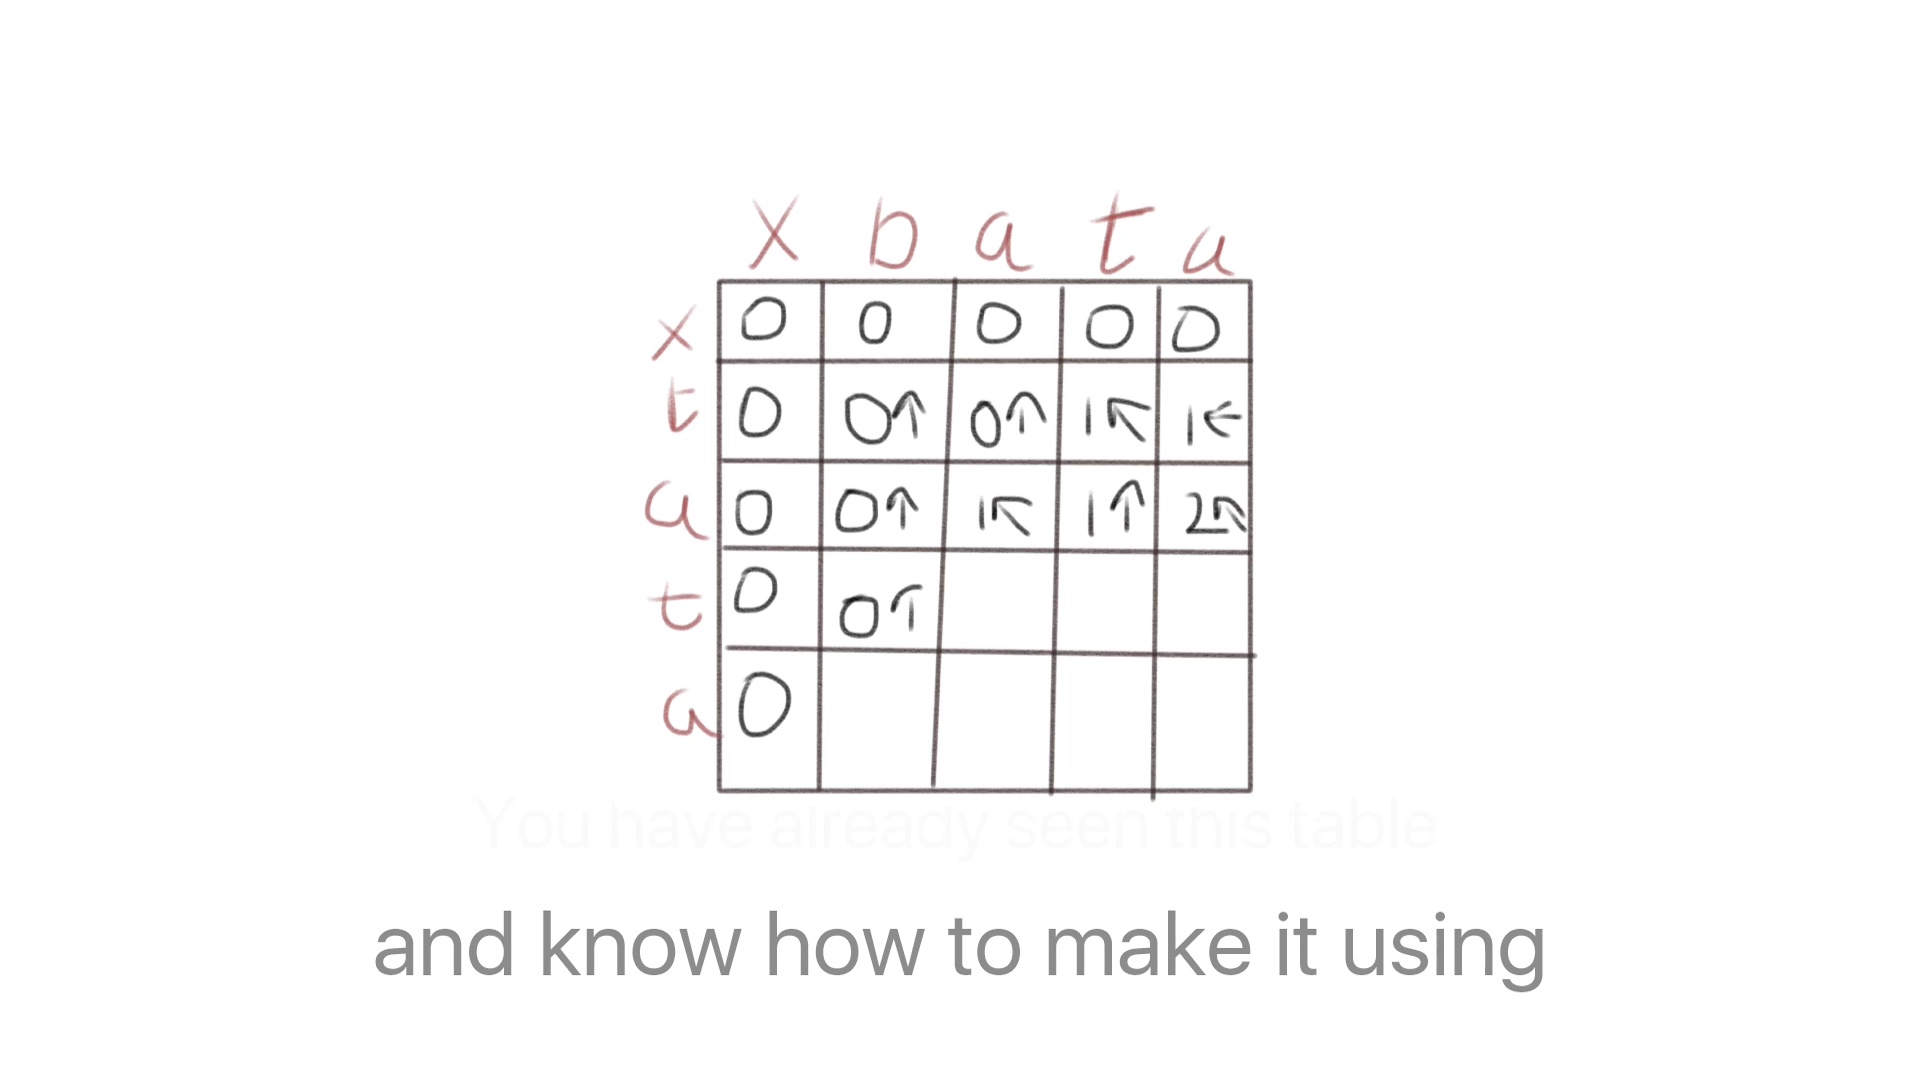 x b a t a
x 0 0 0 0 0
t 0 0↑ 0↑ 1↖ 1←
a 0 0↑ 1↖ 1↑ 2↖
t 0 0↑
a 0
You have already seen this table
and know how to make it using